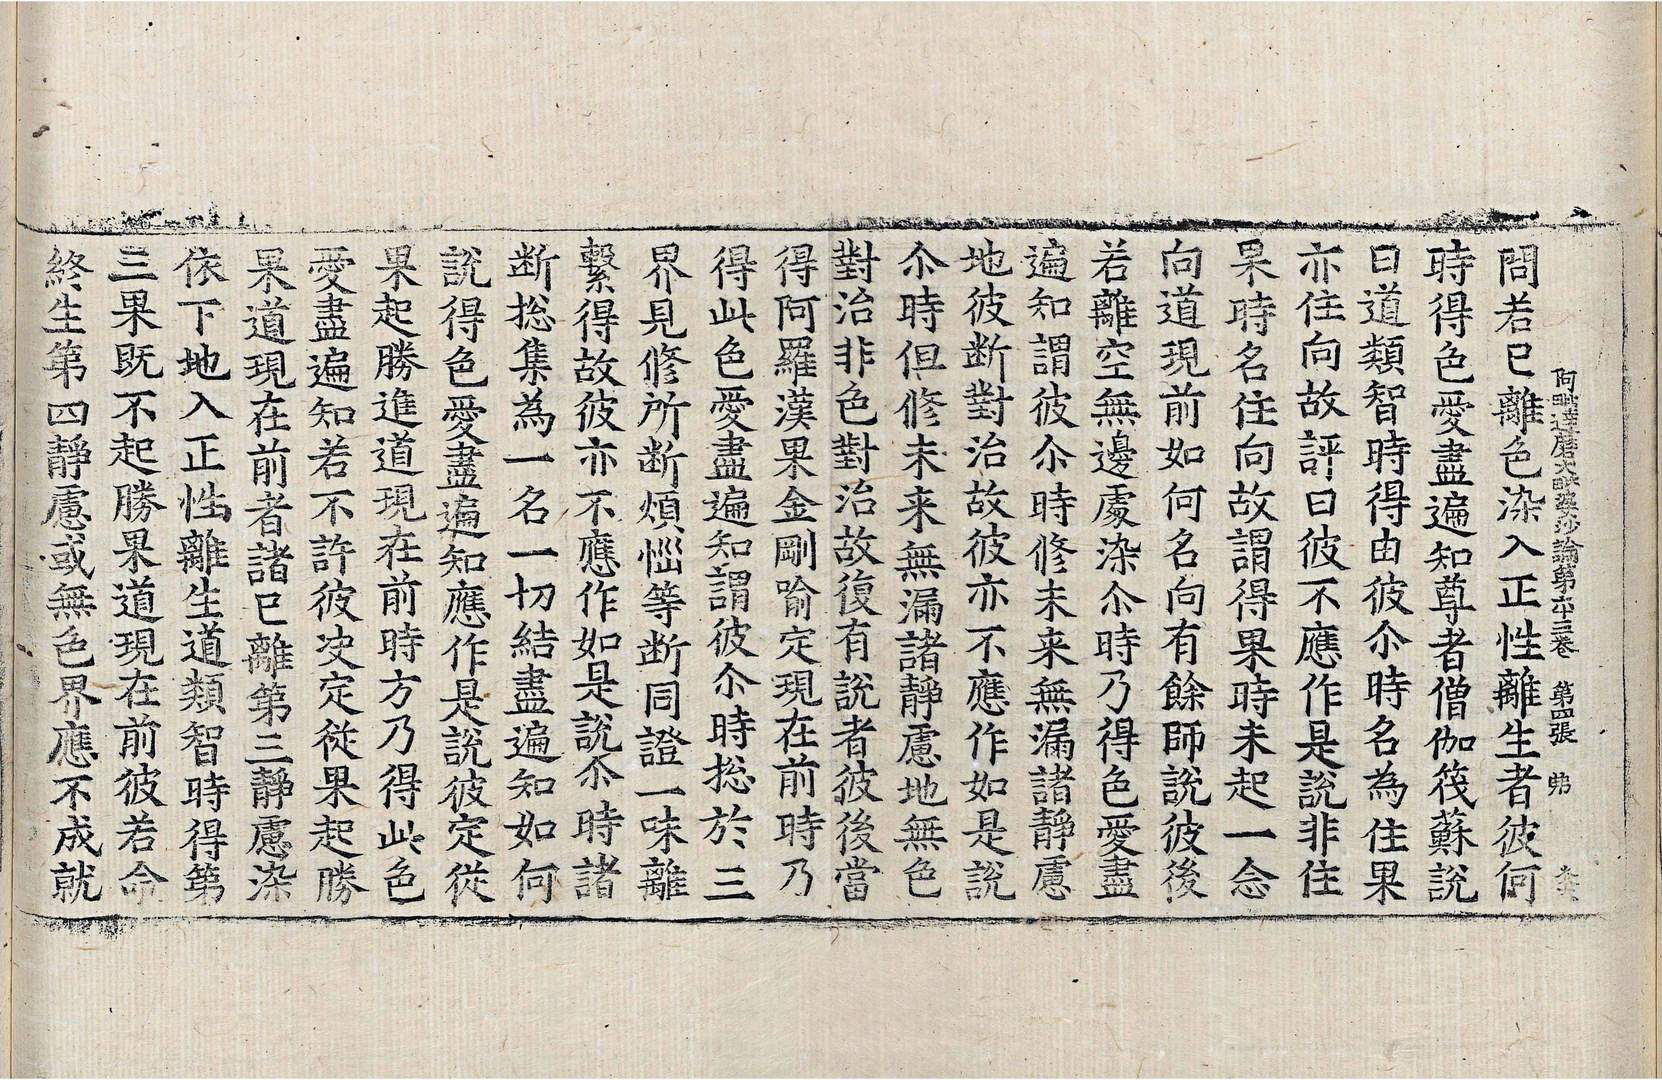 阿毗達磨大毗婆沙論第六十三卷 第四張 弗
問若已離色染入正性離生者彼何
時得色愛盡遍知尊者僧伽筏蘇說
曰道類智時得由彼尒時名為住果
亦住向故評曰彼不應作是說非住
果時名住向故謂得果時未起一念
向道現前如何名向有餘師說彼後
若離空無邊處染尒時乃得色愛盡
遍知謂彼尒時修未来無漏諸靜慮
地彼断對治故彼亦不應作如是說
尒時但修未来無漏諸靜慮地無色
對治非色對治故復有說者彼後當
得阿羅漢果金剛喻定現在前時乃
得此色愛盡遍知謂彼尒時捴於三
界見修所断煩惱等断同證一味離
繫得故彼亦不應作如是說尒時諸
断捴集為一名一切結盡遍知如何
說得色愛盡遍知應作是說彼定從
果起勝進道現在前時方乃得此色
愛盡遍知若不許彼决定從果起勝
果道現在前者諸已離第三靜慮染
依下地入正性離生道類智時得第
三果既不起勝果道現在前彼若命
終生第四靜慮或無色界應不成就